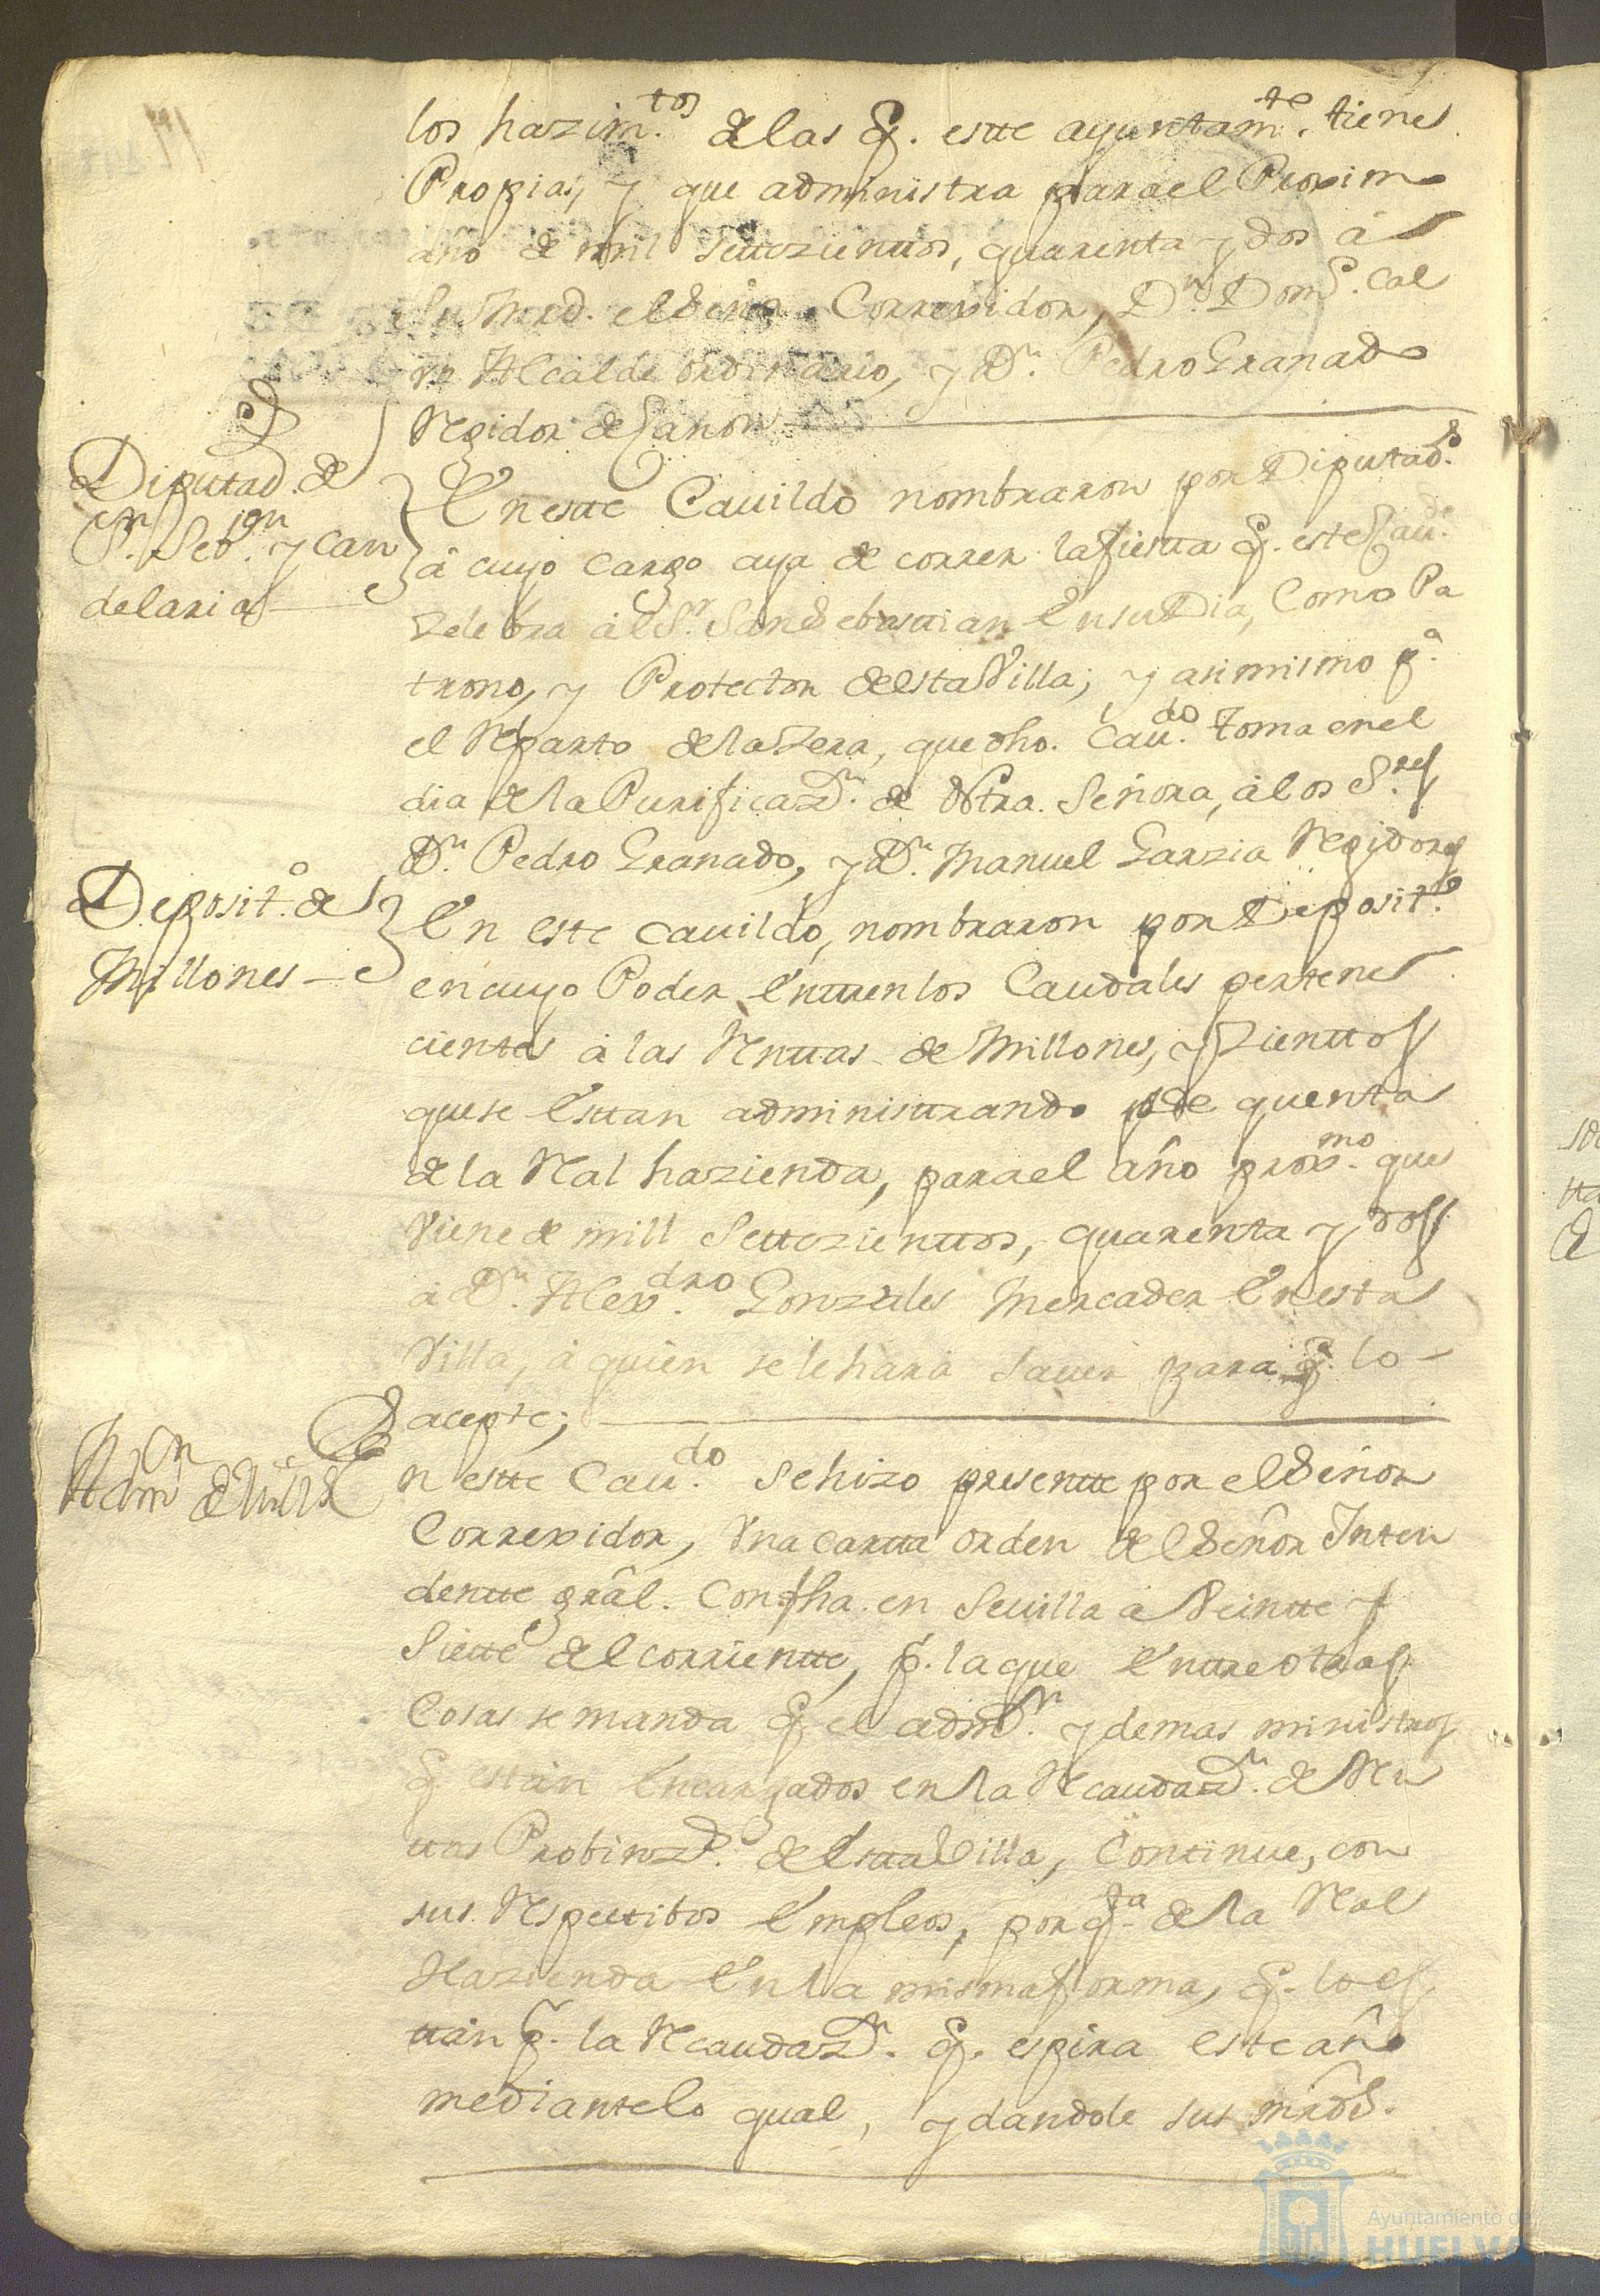 los hazim.tos de las q. este ayuntam.te tiene
Propias, y que administra para el Proximo
año de mil settezienttos, quarenta y dos á
Su Mrd. el Señor Correxidor, Dn. Domo. Cal
vo Alcalde ordinario, y Dn. Pedro Granado
Regidor de Canon
Diputad. de
Sn. Seb.ian y Can
delaria
En este Cavildo nombraron por Diputados.
á cuyo cargo aya de correr la fiesta q. este Cau.do
Zelebra al Sr. San Sebasttian En su Dia, Como Pa
trono, y Protector de esta Villa; y asi mismo p.a
el Reparto de la Zera, que dho. Cau.do toma en el
dia de la Purificazn. de Ntra. Señora, á los S.res
Dn. Pedro Granado, y Dn. Manuel Garzia Regidores
Deposit.o de
Millones
En este cavildo, nombraron por Deposit.o
en cuyo Poder Enttren los Caudales pertene
cientes á las Renttas de Millones, y Zienttos
que se Esttan administtrando de quenta
de la Real hazienda, para el año prox.mo que
Viene de mill settezienttos, quarenta y dos
á Dn. Alex.dro Gonzales Mercader En esta
Villa, á quien se le hará saver para q. lo
acepte;
Admon de
En este Cau.do se hizo presentte por el Señor
Correxidor, Una cartta orden de el Señor Inten
dentte grâl. Con fha. en Sevilla á Veintte y
Siette de el corrientte, p. la que Enttre otras
Cosas se manda q. el admr. y demas ministros
q. estan Encargados en la Recaudazn. de Ren
ttas Probinzs. de Estta Villa, Continue, con
sus Respecttibos Empleos, por qta. de la Real
Hazienda En la misma forma, q. lo es
ttán p. la Recaudazn. q. espira este año
mediante lo qual, y dandole sus mrds.
Ayuntamiento de
HUELVA